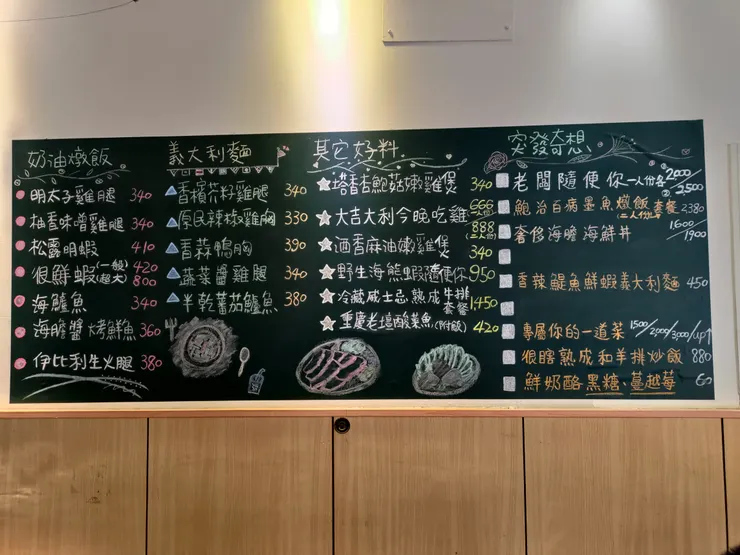 奶油燉飯
明太子雞腿 340
柚香味噌雞腿 340
松露明蝦 410
很鮮蝦(一般) 420
(超大) 800
海鱸魚 340
海膽醬烤鮮魚 360
伊比利生火腿 380
義大利麵
香檳芥籽雞腿 340
原民辣椒雞胸 330
青蒜鴨胸 390
蔬菜醬雞腿 340
半乾蕃茄鱸魚 380
其它好料
塔香杏鮑菇嫩雞煲 340
大吉大利今晚吃雞 666(一人份)
888(二人份)
酒香麻油嫩雞煲 340
野生海熊蝦隨便你 950
冷藏威士忌熟成牛排套餐 1,450
重慶老壇酸菜魚(附飯) 420
突發奇想
老闆隨便你一人份各 ①2,000/②2,500
鮑治百病墨魚燉飯套餐 2,380
(二人份)
奢侈海膽海鮮丼 1,600/1900
香辣鯷魚鮮蝦義大利麵 450
專屬你的一道菜 1,500/2,000/3,000/up↑
很瞎熟成和羊排炒飯 880
鮮奶酪黑糖、蔓越莓 60